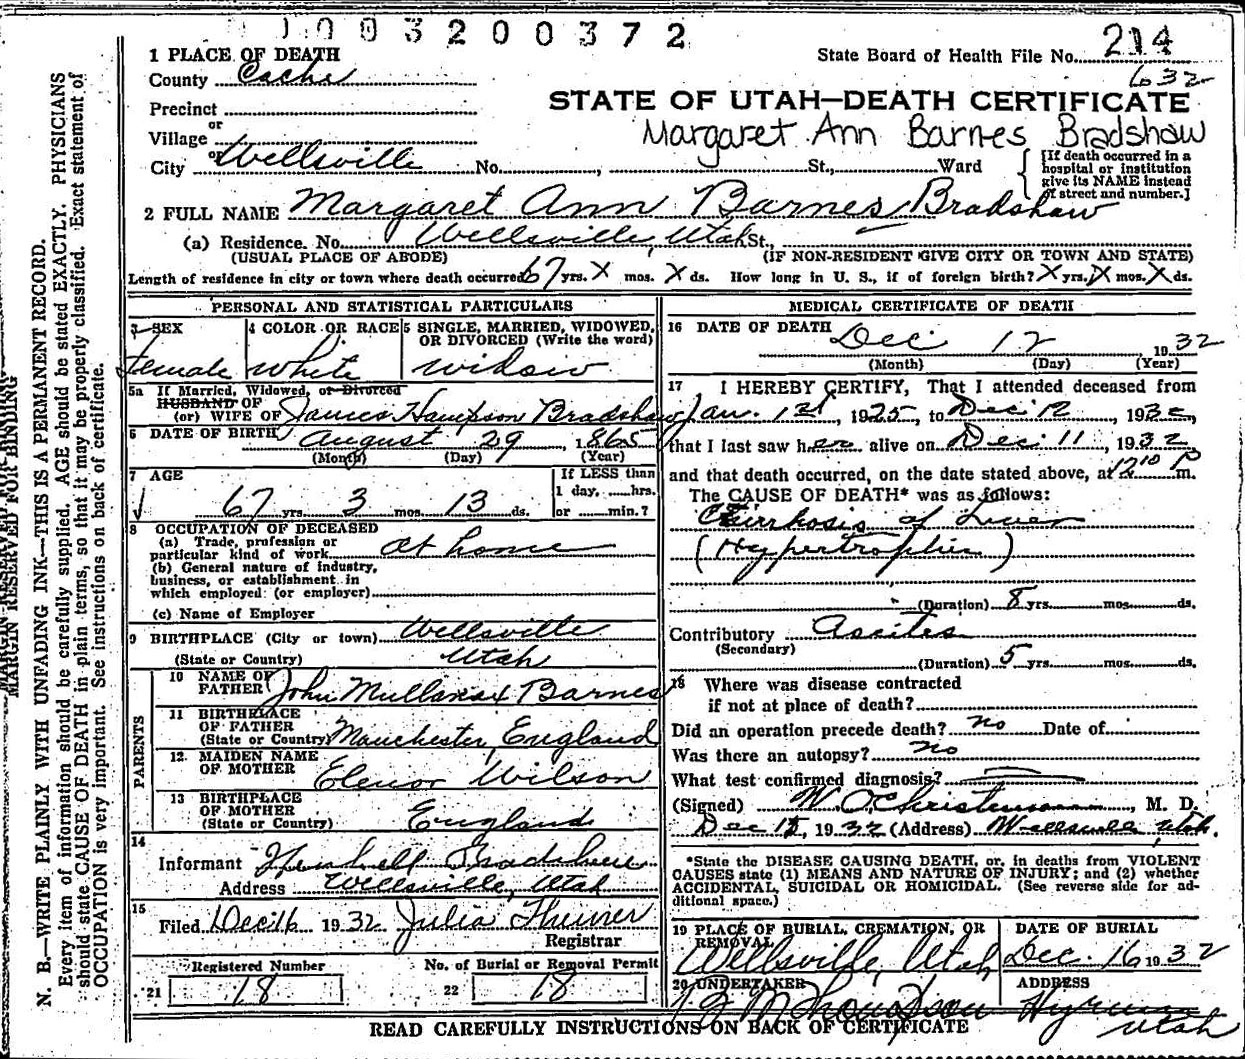 1003200372
1 PLACE OF DEATH
State Board of Health File No. 214
County Cache
632
STATE OF UTAH—DEATH CERTIFICATE
Precinct
Margaret Ann Barnes Bradshaw
or
Village
or
City Wellsville No. , St., Ward
[If death occurred in a
hospital or institution
give its NAME instead
of street and number.]
2 FULL NAME Margaret Ann Barnes Bradshaw
(a) Residence. No. Wellsville, Utah St.,
(USUAL PLACE OF ABODE) (IF NON-RESIDENT GIVE CITY OR TOWN AND STATE)
Length of residence in city or town where death occurred 67 yrs. X mos. X ds. How long in U. S., if of foreign birth? X yrs. X mos. X ds.
PERSONAL AND STATISTICAL PARTICULARS
3 SEX
female
4 COLOR OR RACE
white
5 SINGLE, MARRIED, WIDOWED,
OR DIVORCED (Write the word)
widow
5a If Married, Widowed, or Divorced
HUSBAND OF
(or) WIFE OF James Hampson Bradshaw
6 DATE OF BIRTH August 29 1865
(Month) (Day) (Year)
7 AGE
67 yrs. 3 mos. 13 ds.
If LESS than
1 day, hrs.
or min.?
8 OCCUPATION OF DECEASED
(a) Trade, profession or
particular kind of work At home
(b) General nature of industry,
business, or establishment in
which employed (or employer)
(c) Name of Employer
9 BIRTHPLACE (City or town) Wellsville
(State or Country) Utah
PARENTS
10 NAME OF
FATHER John Mullanax Barnes
11 BIRTHPLACE
OF FATHER
(State or Country) Manchester, England
12 MAIDEN NAME
OF MOTHER Elenor Wilson
13 BIRTHPLACE
OF MOTHER
(State or Country) England
14
Informant Bradshaw
Address Wellsville, Utah
15
Filed Dec. 16 1932 Julia
Registrar
Registered Number
21 18
No. of Burial or Removal Permit
22 18
MEDICAL CERTIFICATE OF DEATH
16 DATE OF DEATH
Dec 12 1932
(Month) (Day) (Year)
17 I HEREBY CERTIFY, That I attended deceased from
Jan. 1st, 1925, to Dec 12, 1932,
that I last saw her alive on Dec. 11, 1932
and that death occurred, on the date stated above, at 12 10 P m.
The CAUSE OF DEATH* was as follows:
Cirrhosis of Liver
(Hypertrophic)
(Duration) 8 yrs. mos. ds.
Contributory Ascites
(Secondary)
(Duration) 5 yrs. mos. ds.
18 Where was disease contracted
if not at place of death?
Did an operation precede death? no Date of
Was there an autopsy? no
What test confirmed diagnosis?
(Signed) W. O. Christensen, M. D.
Dec 15, 1932 (Address) Wellsville Utah.
*State the DISEASE CAUSING DEATH, or, in deaths from VIOLENT
CAUSES state (1) MEANS AND NATURE OF INJURY; and (2) whether
ACCIDENTAL, SUICIDAL OR HOMICIDAL. (See reverse side for ad-
ditional space.)
19 PLACE OF BURIAL, CREMATION, OR
REMOVAL
Wellsville, Utah
DATE OF BURIAL
Dec. 16 1932
20 UNDERTAKER
Thompson
ADDRESS
Hyrum
Utah
READ CAREFULLY INSTRUCTIONS ON BACK OF CERTIFICATE
MARGIN RESERVED FOR BINDING
N. B.—WRITE PLAINLY WITH UNFADING INK—THIS IS A PERMANENT RECORD.
Every item of information should be carefully supplied. AGE should be stated EXACTLY. PHYSICIANS
should state CAUSE OF DEATH in plain terms, so that it may be properly classified. Exact statement of
OCCUPATION is very important. See instructions on back of certificate.